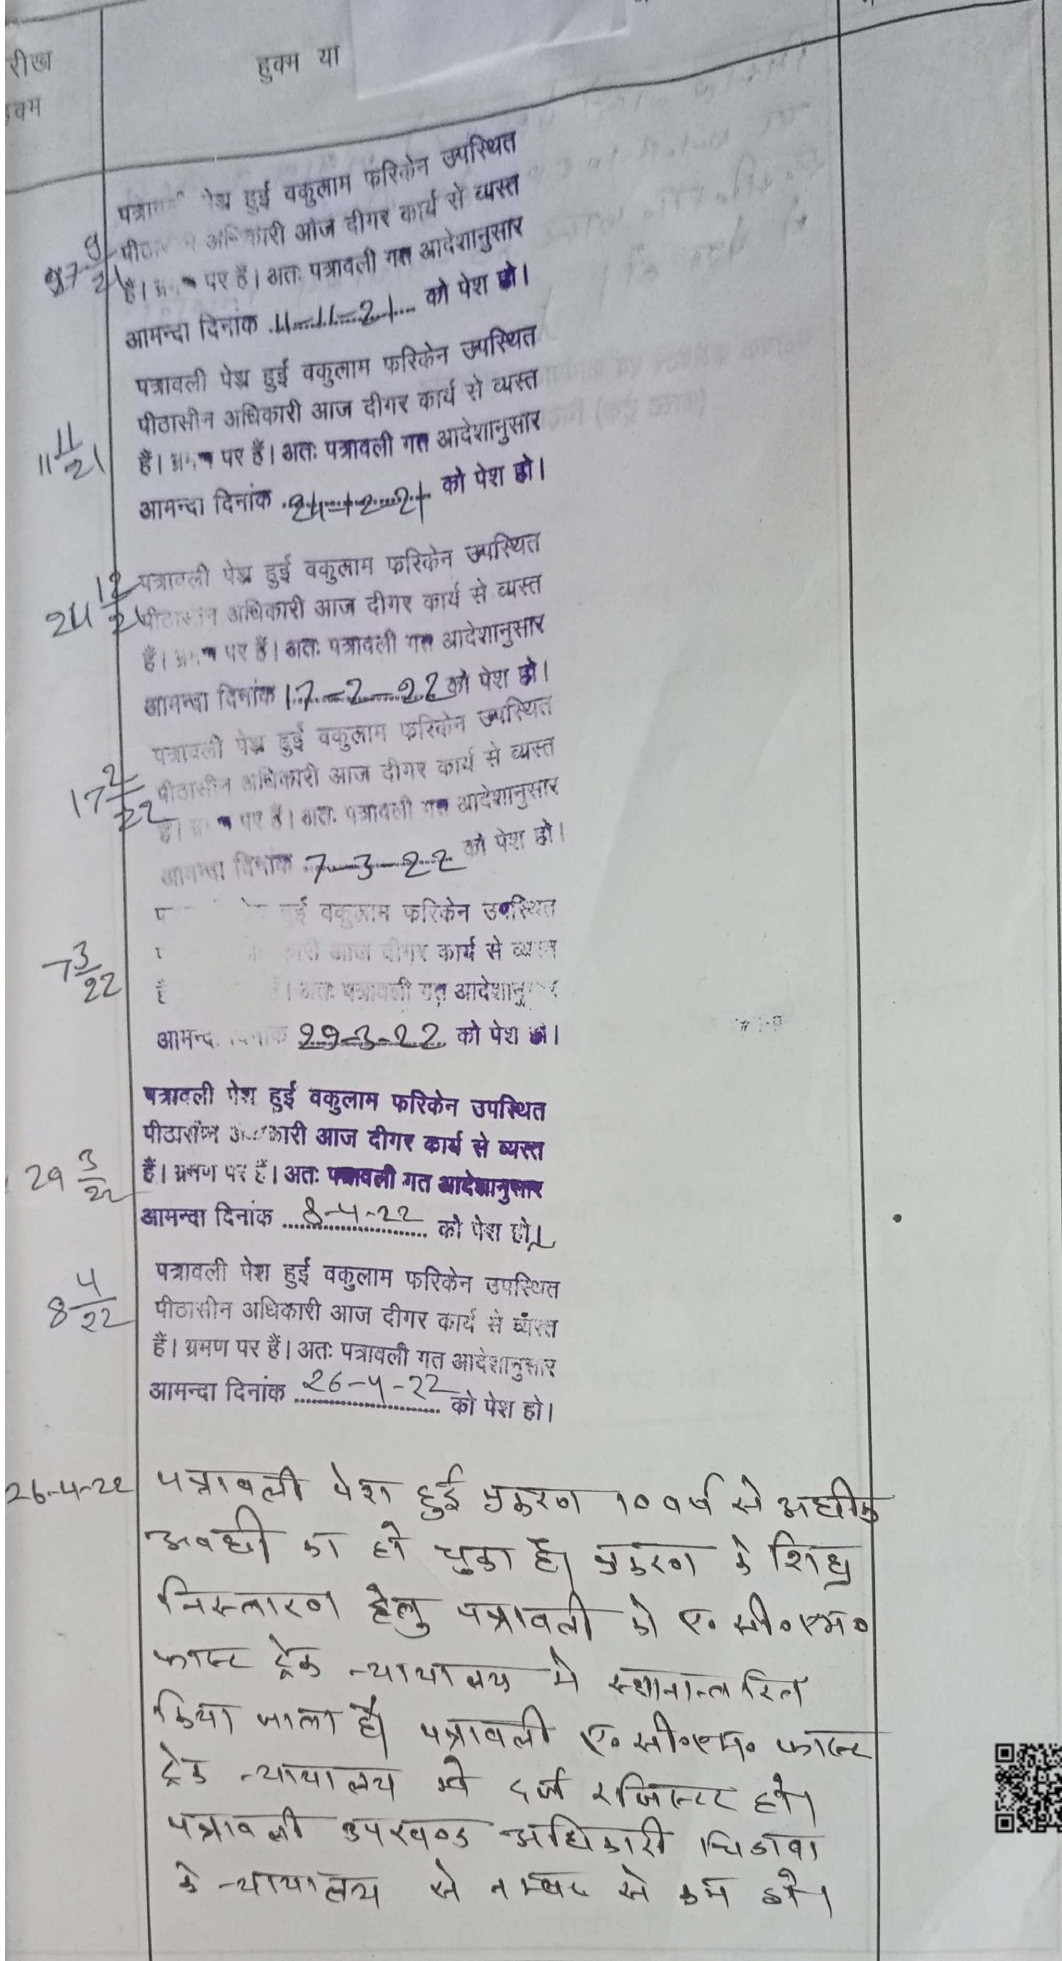 रीख
हुक्म या
क्म
पेश हुई वकुलाम फरिकेन उपस्थित
27 9/21
अधिकारी आज दीगर कार्य से व्यस्त
हैं। पर हैं। अतः पत्रावली गत आदेशानुसार
आमन्दा दिनांक 11-11-21 को पेश हो।
पत्रावली पेश हुई वकुलाम फरिकेन उपस्थित
पीठासीन अधिकारी आज दीगर कार्य से व्यस्त
11 11/21
हैं। पर हैं। अतः पत्रावली गत आदेशानुसार
आमन्दा दिनांक 24-12-21 को पेश हो।
24 12/21
पत्रावली पेश हुई वकुलाम फरिकेन उपस्थित
पीठासीन अधिकारी आज दीगर कार्य से व्यस्त
हैं। पर हैं। अतः पत्रावली गत आदेशानुसार
आमन्दा दिनांक 17-2-22 को पेश हो।
पत्रावली पेश हुई वकुलाम फरिकेन उपस्थित
17 2/22
पीठासीन अधिकारी आज दीगर कार्य से व्यस्त
हैं। पर हैं। अतः पत्रावली गत आदेशानुसार
आमन्दा दिनांक 7-3-22 को पेश हो।
हुई वकुलाम फरिकेन उपस्थित
7 3/22
आज दीगर कार्य से व्यस्त
अतः पत्रावली गत आदेशानुसार
आमन्दा दिनांक 29-3-22 को पेश हो।
पत्रावली पेश हुई वकुलाम फरिकेन उपस्थित
पीठासीन अधिकारी आज दीगर कार्य से व्यस्त
29 3/22
हैं। भ्रमण पर हैं। अतः पत्रावली गत आदेशानुसार
आमन्दा दिनांक 8-4-22 को पेश हो।
पत्रावली पेश हुई वकुलाम फरिकेन उपस्थित
8 4/22
पीठासीन अधिकारी आज दीगर कार्य से व्यस्त
हैं। भ्रमण पर हैं। अतः पत्रावली गत आदेशानुसार
आमन्दा दिनांक 26-4-22 को पेश हो।
26-4-22 पत्रावली पेश हुई प्रकरण 10 वर्ष से अधीक
अवधी का हो चुका है। प्रकरण के शिघ्र
निस्तारण हेतु पत्रावली को ए० सी०एम०
फास्ट ट्रेक न्यायालय मे स्थानान्तरित
किया जाता है। पत्रावली ए० सी०एम० फास्ट
ट्रेक न्यायालय मे दर्ज रजिस्टर हो।
पत्रावली उपखण्ड अधिकारी चिडावा
के न्यायालय से नम्बर से कम हो।